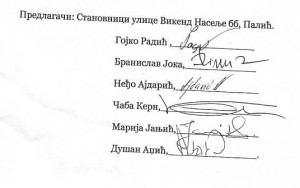 Предлагачи: Становници улице Викенд Насеље 6б, Палић.
Гојко Радић,
Бранислав Јока,
Неђо Ајдарић,
Чаба Керн,
Марија Јањић,
Душан Аџић,